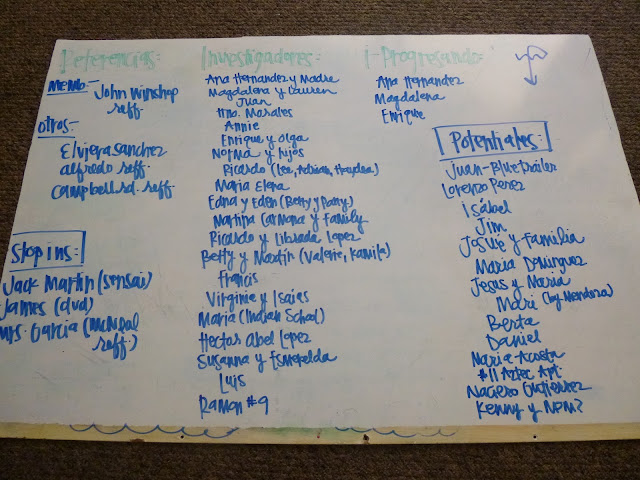 Referencias:
MEMB:-
John Winshop
reff.
otros:-
Elviera Sanchez
alfredo reff.
Campbell rd. reff.
Stop ins:
Jack Martin (sensai)
James (dvd)
Mrs. Garcia (McNeal
reff.)
Investigadores:
Ana Hernandez y Madre
Magdalena y Lauren
Juan
Hno. Morales
Annie
Enrique y Olga
Norma y hijos
Ricardo (Lee, Adrian, Haydea)
Maria Elena
Edna y Eden (Betty y Patty)
Martina Carmona y Family
Ricardo y Librada Lopez
Betty y Martin (Valerie, Kamila)
Francis
Virginia y Isaias
Maria (Indian School)
Hector Abel Lopez
Susanna y Esmerelda
Luis
Ramon #9
i-Progresando:
Ana Hernandez
Magdalena
Enrique
Potentiales:
Juan-Bluetrailer
Lorenzo Perez
Isabel
Jim
Josue y Familia
Maria Dominguez
Jesus y Maria
Mari (by Mendoza)
Berta
Daniel
Maria Acosta
#11 Aztec Apt.
Naciero Gutierrez
Kenny y Nem?